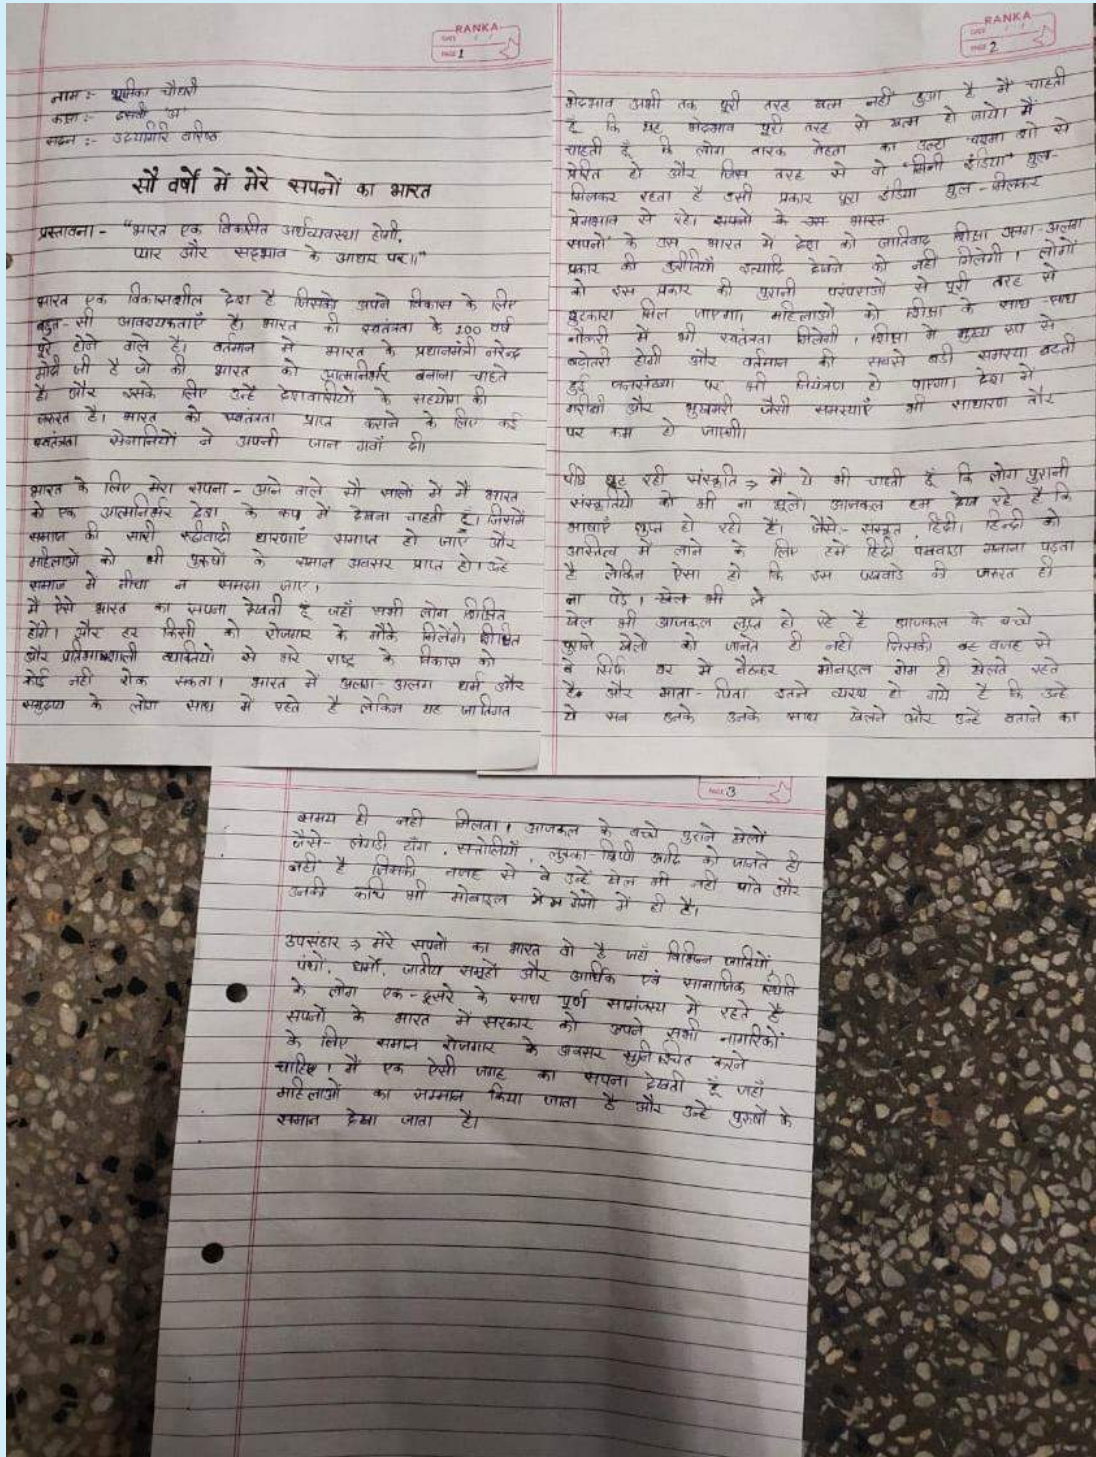 RANKA
DATE / /
PAGE 1
नाम :- भूमिका चौधरी
कक्षा :- दसवीं 'अ'
सदन :- उदयगिरि वरिष्ठ
सौ वर्षों में मेरे सपनों का भारत
प्रस्तावना - "भारत एक विकसित अर्थव्यवस्था होगी,
प्यार और सद्भाव के आधार पर॥"
भारत एक विकासशील देश है जिसको अपने विकास के लिए
बहुत-सी आवश्यकताएँ है। भारत की स्वतंत्रता के 100 वर्ष
पूरे होने वाले है। वर्तमान में भारत के प्रधानमंत्री नरेन्द्र
मोदी जी है जो की भारत को आत्मनिर्भर बनाना चाहते
है। और इसके लिए उन्हें देशवासियों के सहयोग की
जरूरत है। भारत को स्वतंत्रता प्राप्त कराने के लिए कई
स्वतंत्रता सेनानियों ने अपनी जान गवाँ दी।
भारत के लिए मेरा सपना - आने वाले सौ सालों में मैं भारत
को एक आत्मनिर्भर देश के रूप में देखना चाहती हूँ। जिसमें
समाज की सारी रूढीवादी धारणाएँ समाप्त हो जाएँ और
महिलाओं को भी पुरूषों के समान अवसर प्राप्त हो। उन्हें
समाज में नीचा न समझा जाए।
मैं ऐसे भारत का सपना देखती हूँ जहाँ सभी लोग शिक्षित
होंगे। और हर किसी को रोजगार के मौके मिलेंगे। शिक्षित
और प्रतिभाशाली व्यक्तियों से भरे राष्ट्र के विकास को
कोई नहीं रोक सकता। भारत में अलग-अलग धर्म और
समुदाय के लोग साथ में रहते है लेकिन यह जातिगत
RANKA
DATE / /
PAGE 2
भेदभाव अभी तक पूरी तरह खत्म नहीं हुआ है मैं चाहती
हूँ कि यह भेदभाव पूरी तरह से खत्म हो जाये। मैं
चाहती हूँ कि लोग तारक मेहता का उल्टा चश्मा शो से
प्रेरित हो और जिस तरह से वो "मिनी इंडिया" घुल-
मिलकर रहता है उसी प्रकार पूरा इंडिया घुल-मिलकर
प्रेमभाव से रहे। सपनों के उस भारत
सपनों के उस भारत में देश को जातिवाद शिक्षा अलग-अलग
प्रकार की कुरीतियाँ इत्यादि देखने को नहीं मिलेगी। लोगों
को इस प्रकार की पुरानी परंपराओं से पूरी तरह से
छुटकारा मिल जाएगा। महिलाओं को शिक्षा के साथ-साथ
नौकरी में भी स्वतंत्रता मिलेगी। शिक्षा में मुख्य रूप से
बढोतरी होगी और वर्तमान की सबसे बडी समस्या बढती
हुई जनसंख्या पर भी नियंत्रण हो पाएगा। देश में
गरीबी और भुखमरी जैसी समस्याएँ भी साधारण तौर
पर कम हो जाएगी।
पीछे छूट रही संस्कृति → मैं ये भी चाहती हूँ कि लोग पुरानी
संस्कृतियों को भी ना भूले। आजकल हम देख रहे है कि
भाषाएँ लुप्त हो रही है। जैसे:- संस्कृत, हिंदी। हिन्दी को
अस्तित्व में लाने के लिए हमें हिंदी पखवाडा मनाना पड़ता
है लेकिन ऐसा हो कि इस पखवाडे की जरूरत ही
ना पडे। खेल भी ले
खेल भी आजकल लुप्त हो रहे है आजकल के बच्चे
पुराने खेलों को जानते ही नहीं जिसकी वजह से
वे सिर्फ घर में बैठकर मोबाइल गेम ही खेलते रहते
है। और माता-पिता इतने व्यस्थ हो गये है कि उन्हें
ये सब उनके उनके साथ खेलने और उन्हें बताने का
PAGE 3
समय ही नहीं मिलता। आजकल के बच्चे पुराने खेलों
जैसे- लंगडी टांग, सतोलियाँ, लुक्का-छिपी आदि को जानते ही
नहीं है जिसकी वजह से वे उन्हें खेल भी नहीं पाते और
उनकी रूचि भी मोबाइल गेमों में ही है।
उपसंहार → मेरे सपनों का भारत वो है जहाँ विभिन्न जातियों
पंथों, धर्मों, जातीय समूहों और आर्थिक एवं सामाजिक स्थिति
के लोग एक-दूसरे के साथ पूर्ण सामंजस्य में रहते है
सपनों के भारत में सरकार को अपने सभी नागरिकों
के लिए समान रोजगार के अवसर सुनिश्चित करने
चाहिए। मैं एक ऐसी जगह का सपना देखती हूँ जहाँ
महिलाओं का सम्मान किया जाता है और उन्हें पुरूषों के
समान देखा जाता है।